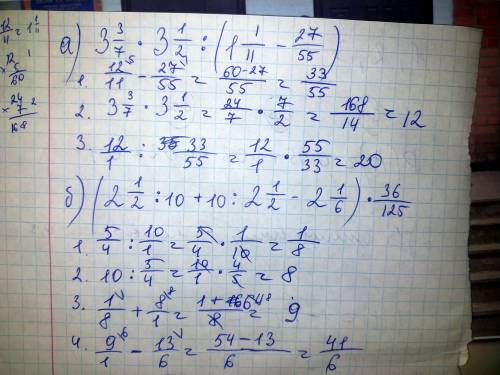 12/11 = 1 1/11
× 12
5
60
× 24
7
168
а) 3 3/7 · 3 1/2 : (1 1/11 − 27/55)
1. 12/11 − 27/55 = 60-27/55 = 33/55
2. 3 3/7 · 3 1/2 = 24/7 · 7/2 = 168/14 = 12
3. 12/1 : 33/55 = 12/1 · 55/33 = 20
б) (2 1/2 : 10 + 10 : 2 1/2 − 2 1/6) · 36/125
1. 5/4 : 10/1 = 5/4 · 1/10 = 1/8
2. 10 : 5/4 = 10/1 · 4/5 = 8
3. 1/8 + 8/1 = 1+64/8 = 9
4. 9/1 − 13/6 = 54-13/6 = 41/6